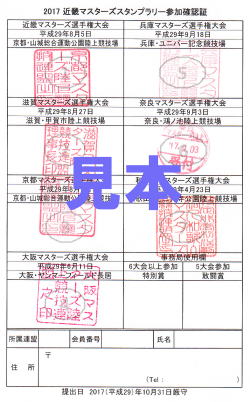 2017 近畿マスターズスタンプラリー参加確認証
近畿マスターズ選手権大会
平成29年8月5日
京都・山城総合運動公園陸上競技場
兵庫マスターズ選手権大会
平成29年9月18日
兵庫・ユニバー記念競技場
滋賀マスターズ選手権大会
平成29年8月27日
滋賀・甲賀市陸上競技場
奈良マスターズ選手権大会
平成29年9月3日
奈良・鴻ノ池陸上競技場
見本
京都マスターズ選手権大会
平成29年
京都・山城総合運動公園陸上競技場
マスターズ選手権大会
年4月23日
公園陸上競技場
大阪マスターズ選手権大会
平成29年6月11日
大阪・ヤンマーフィールド長居
事務局使用欄
6大会以上参加
特別賞
5大会参加
敢闘賞
所属連盟
会員番号
氏名
住所
〒
(Tel : )
提出日 2017(平成29)年10月31日厳守